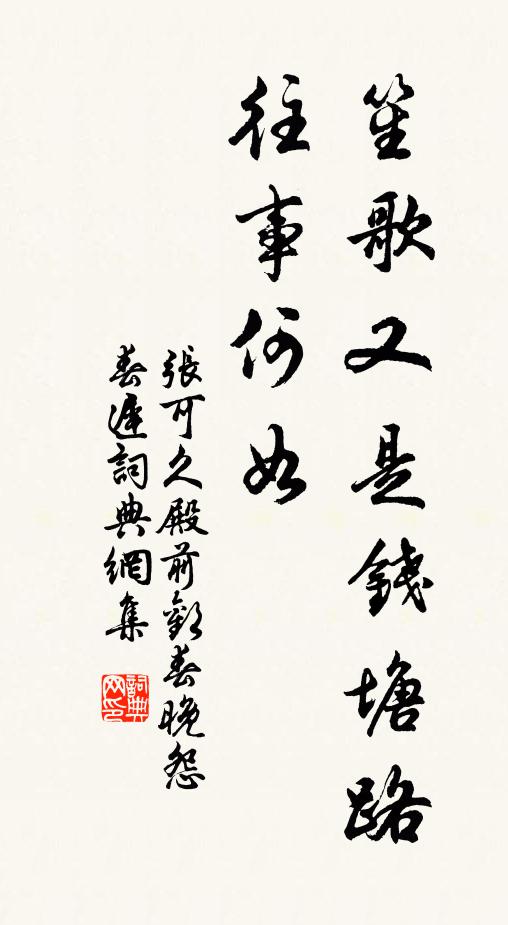 笙歌又是錢塘路
往事何如
張可久殿前歡春晚怨
春遲詞典網集
詞典网印